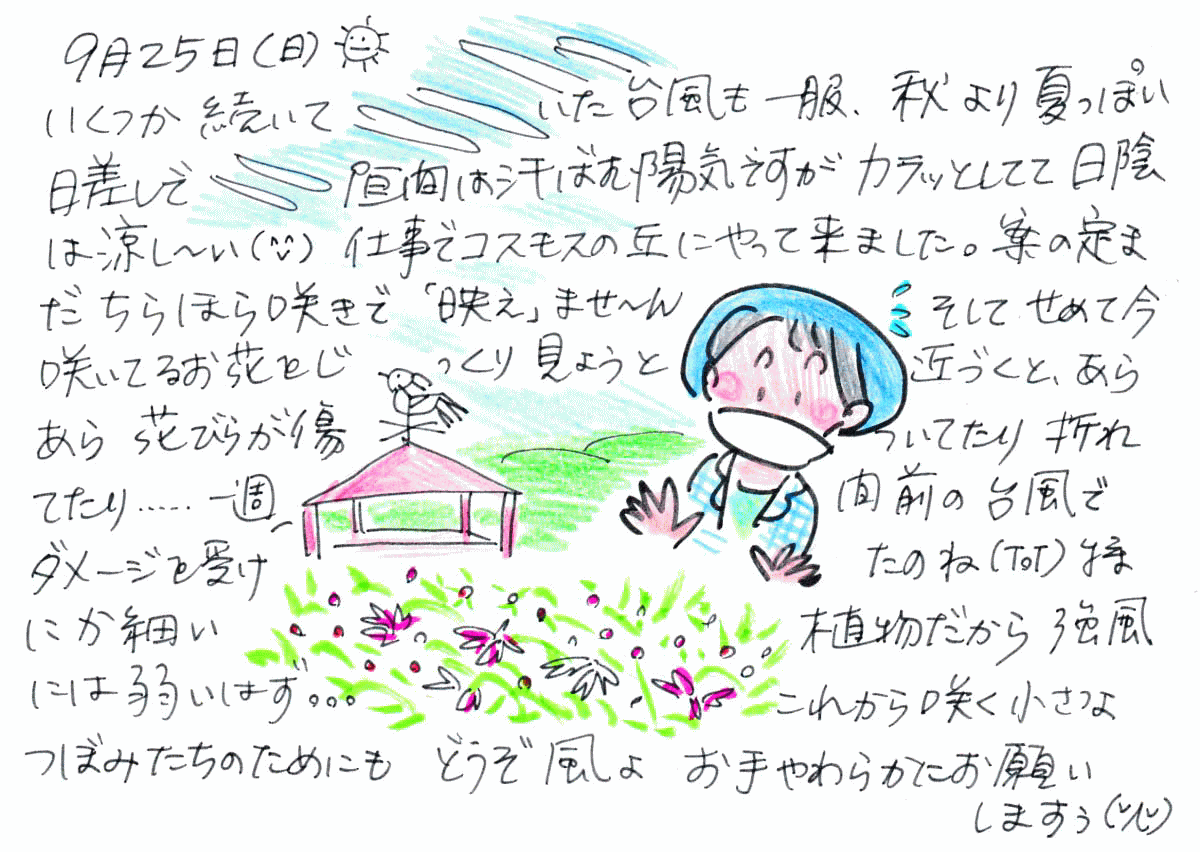 9月25日(日)
いくつか続いて いた台風も一服、秋より夏っぽい
日差しで 昼間は汗ばむ陽気ですがカラッとしてて日陰
は涼し〜い(^^) 仕事でコスモスの丘にやって来ました。案の定ま
だちらほら咲きで「映え」ませ〜ん そしてせめて今
咲いてるお花をじ っくり見ようと 近づくと、あら
あら花びらが傷 ついてたり折れ
てたり……一週 間前の台風で
ダメージを受け たのね(ToT)様
にか細い 植物だから強風
には弱いはず。。。 これから咲く小さな
つぼみたちのためにも どうぞ風よ お手やわらかにお願い
しますぅ(^人^)